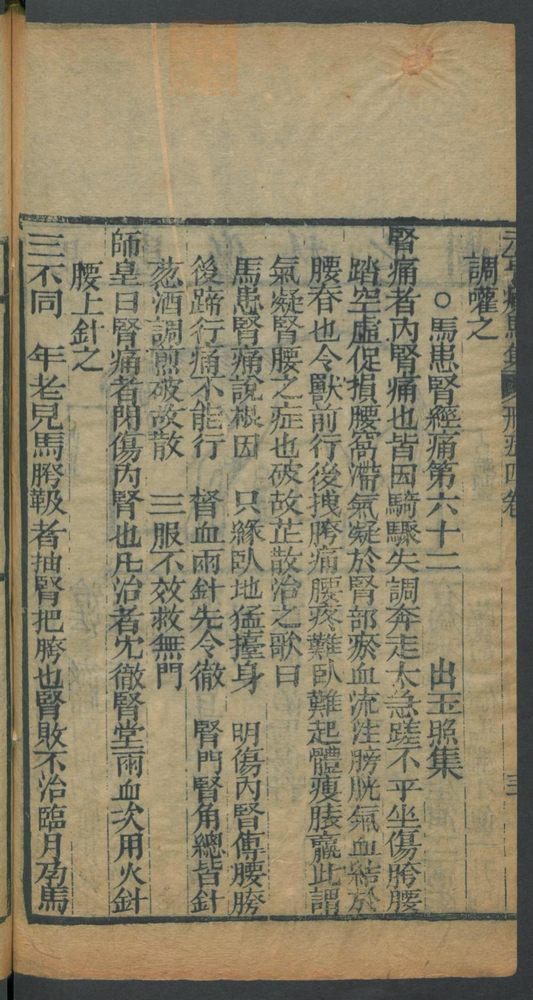 元亨療馬集 形症四卷 三
調嚾之
○馬患腎經痛第六十二 出玉照集
腎痛者內腎痛也皆因騎驟失調奔走太急蹉不平坐傷胯腰
踏空虛促損腰窩滯氣凝於腎部瘀血流注膀胱氣血結於
腰脊也令獸前行後拽胯痛腰疼難臥難起體瘦膁羸此謂
氣凝腎腰之症也破故芷散治之歌曰
馬患腎痛說根因 只緣臥地猛擡身 明傷內腎傳腰胯
後蹄行痛不能行 督血兩針先令徹 腎門腎角總皆針
葱酒調煎破故散 三服不效救無門
師皇曰腎痛者閃傷內腎也凡治者尤徹腎堂兩血次用火針
腰上針之
三不同 年老兒馬胯靸者抽腎把胯也腎敗不治臨月孕馬